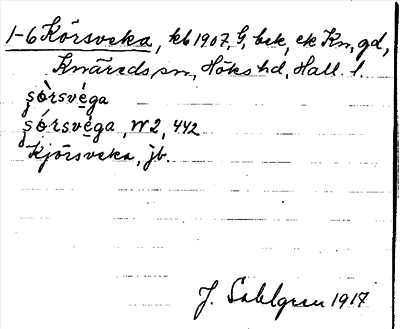 1-6 Körsveka, kb 1907, G, bek, ek Kn, gd,
Knäreds sn, Höks hd, Hall. l.
şòrsvéga
şórsvéga, W2, 442
Kjörsveka, jb.
J. Sahlgren 1917